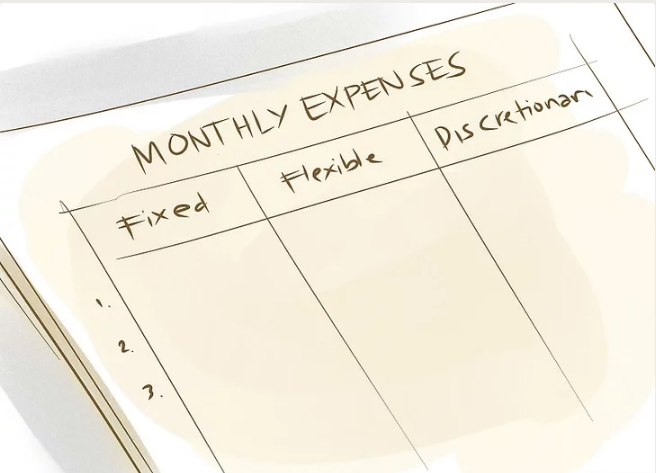 MONTHLY EXPENSES
Fixed Flexible Discretionary
1.
2.
3.